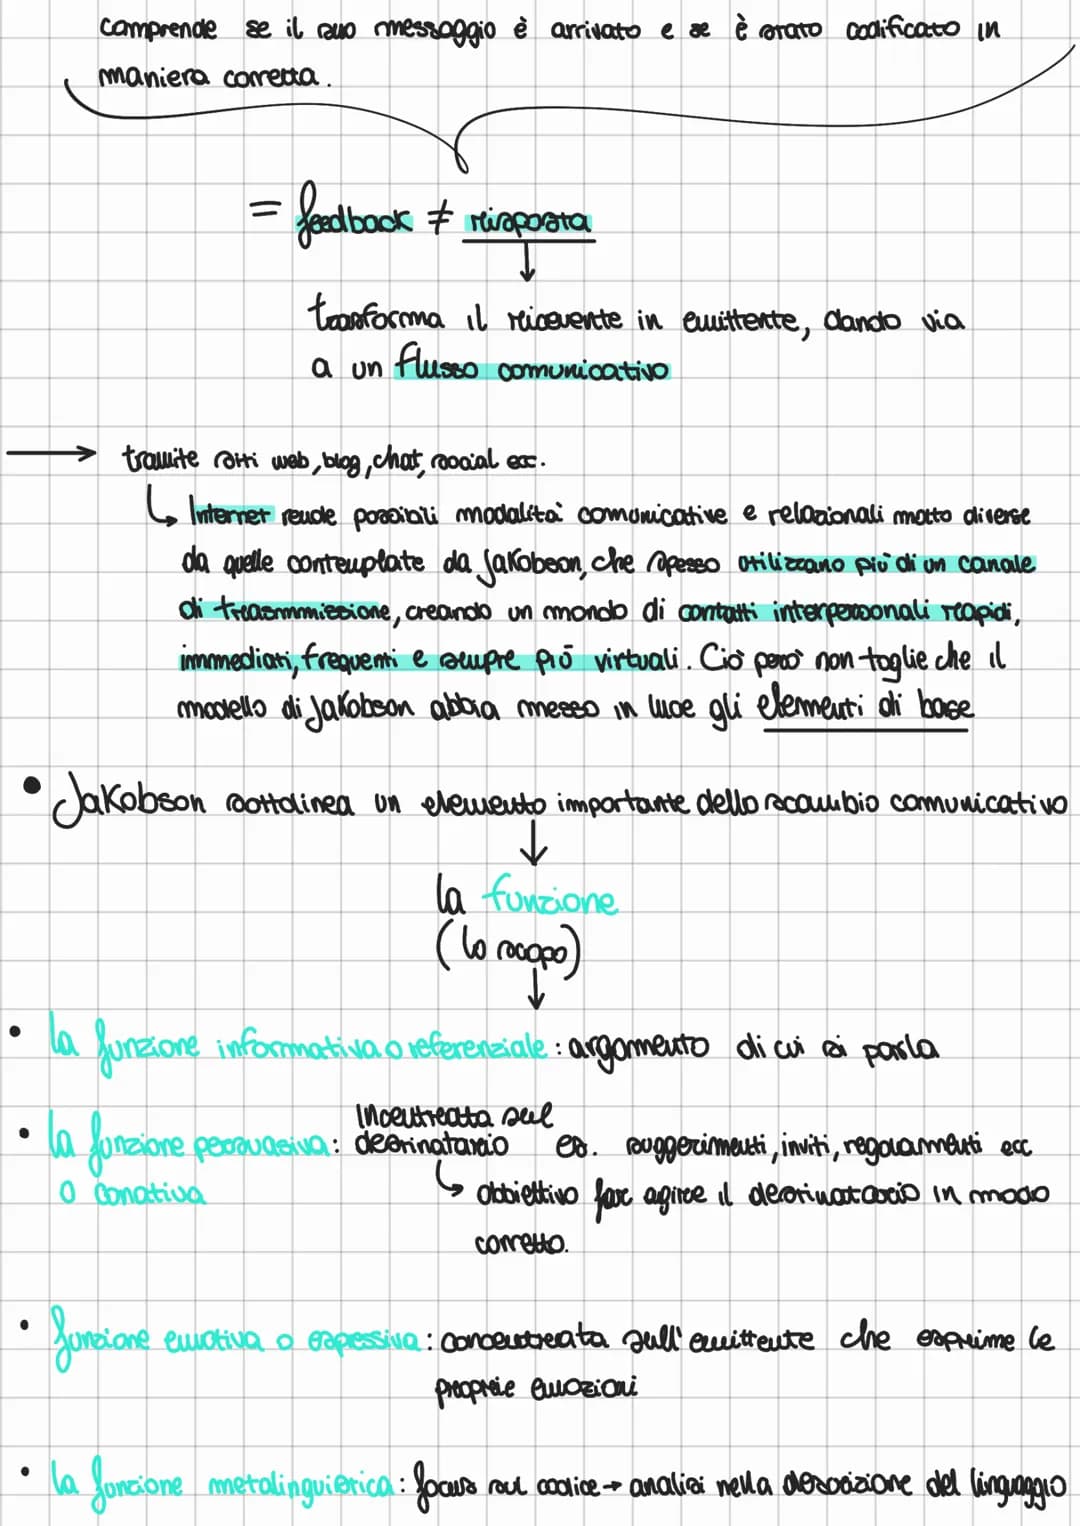 comprende se il suo messaggio è arrivato e se è stato codificato in
maniera corretta.
= feedback ≠ risposta
↓
trasforma il ricevente in emittente, dando via
a un flusso comunicativo
→ tramite siti web, blog, chat, social ecc.
↳ Internet rende possibili modalità comunicative e relazionali molto diverse
da quelle contemplate da Jakobson, che spesso utilizzano più di un canale
di trasmmissione, creando un mondo di contatti interpersonali rapidi,
immediati, frequenti e sempre più virtuali. Ciò però non toglie che il
modello di Jakobson abbia messo in luce gli elementi di base
• Jakobson sottolinea un elemento importante dello scambio comunicativo
↓
la funzione
(lo scopo)
↓
• la funzione informativa o referenziale: argomento di cui si parla
• la funzione persuasiva: incentrata sul destinatario es. suggerimenti, inviti, regolamenti ecc
o conativa ↳ obbiettivo far agire il destinatario in modo
corretto.
• funzione emotiva o espessiva: concentrata sull'emittente che esprime le
proprie emozioni
• la funzione metalinguistica: focus sul codice → analisi nella descrizione del linguaggio